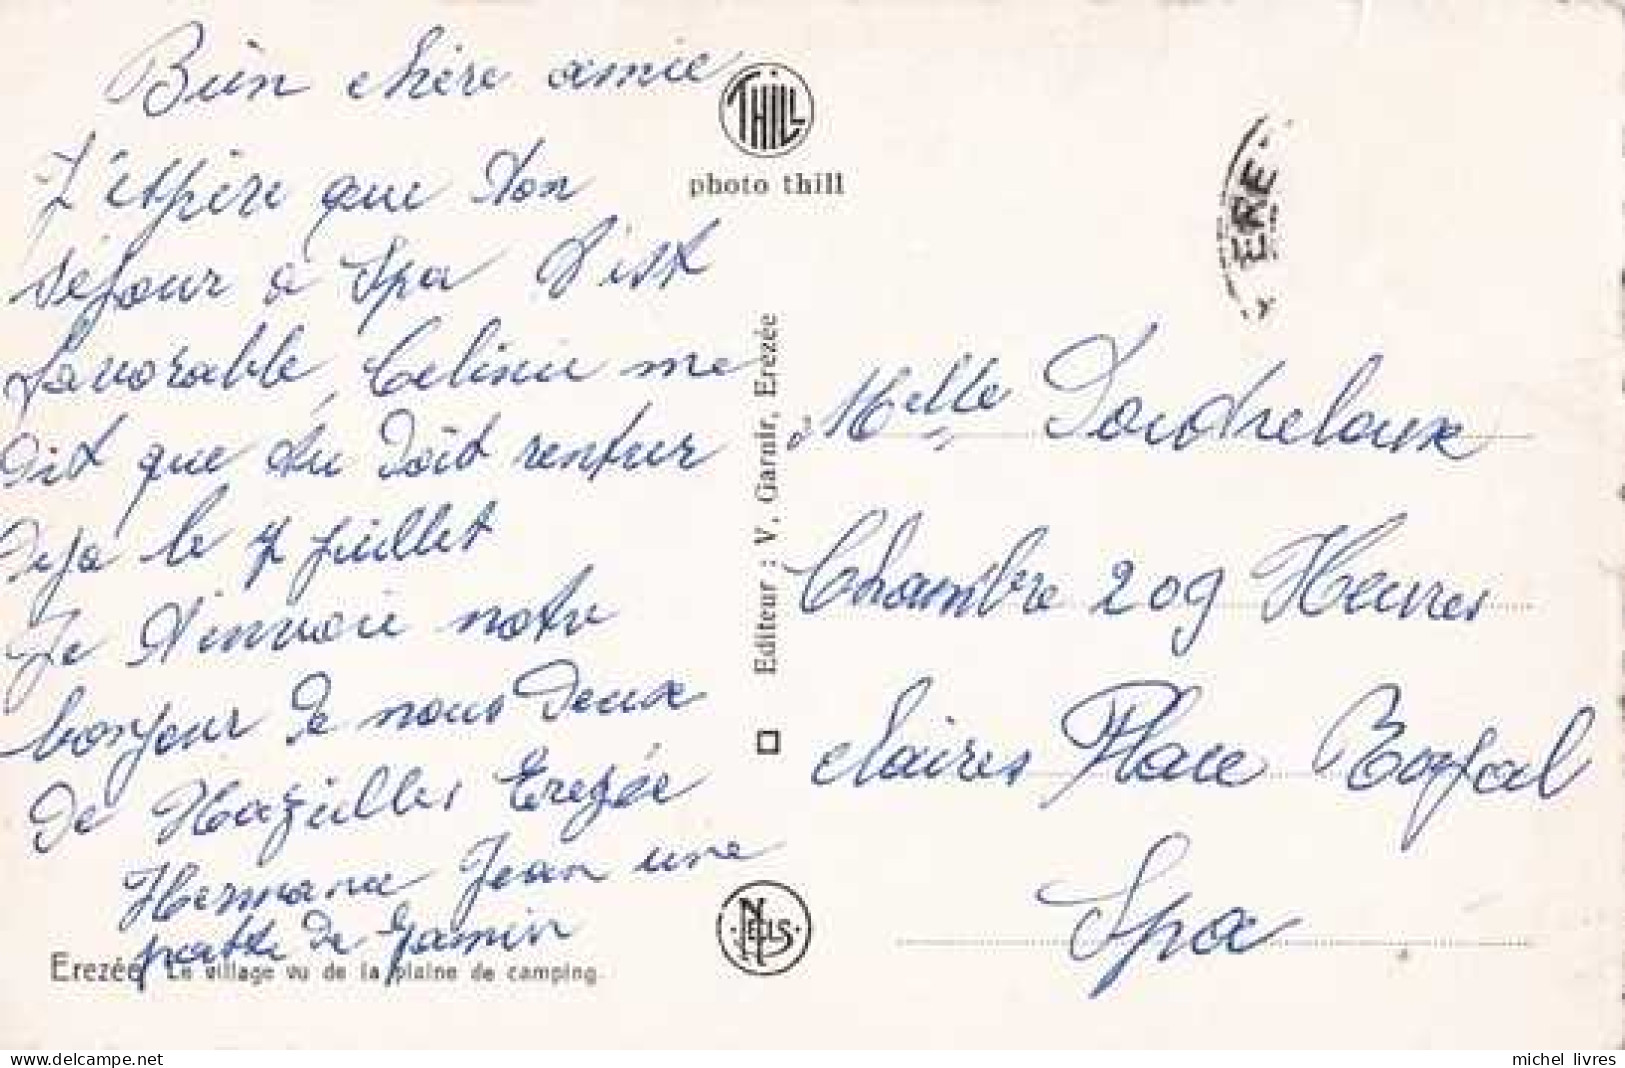 Bien chère amie
J'éspère que ton
séjour à Spa t'est
favorable, Celinie me
dit que tu doit rentrer
deja le 7 juillet
Je t'envoie notre
bonjour de nous deux
de Hazeilles Erezée
Hermance Jean une
patte de Jamin
Erezée Le village vu de la plaine de camping
THILL
photo thill
Editeur : V. Garnir, Erezée
NELS
ERE
Melle Doudreloux
Chambre 209 Heures
claires Place Royal
Spa
delcampe.net
michel_livres